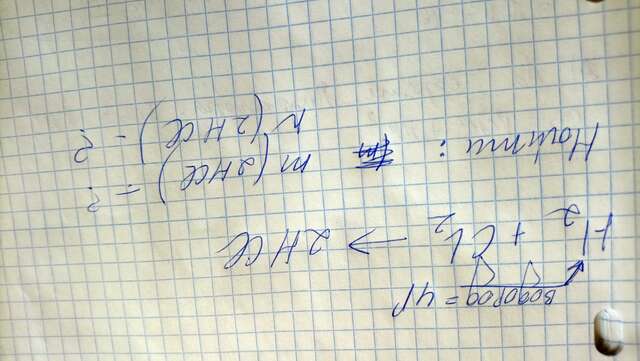 водород = 4г
H₂ + Cl₂ → 2HCl
Найти: m(2HCl) - ?
n(2HCl) - ?